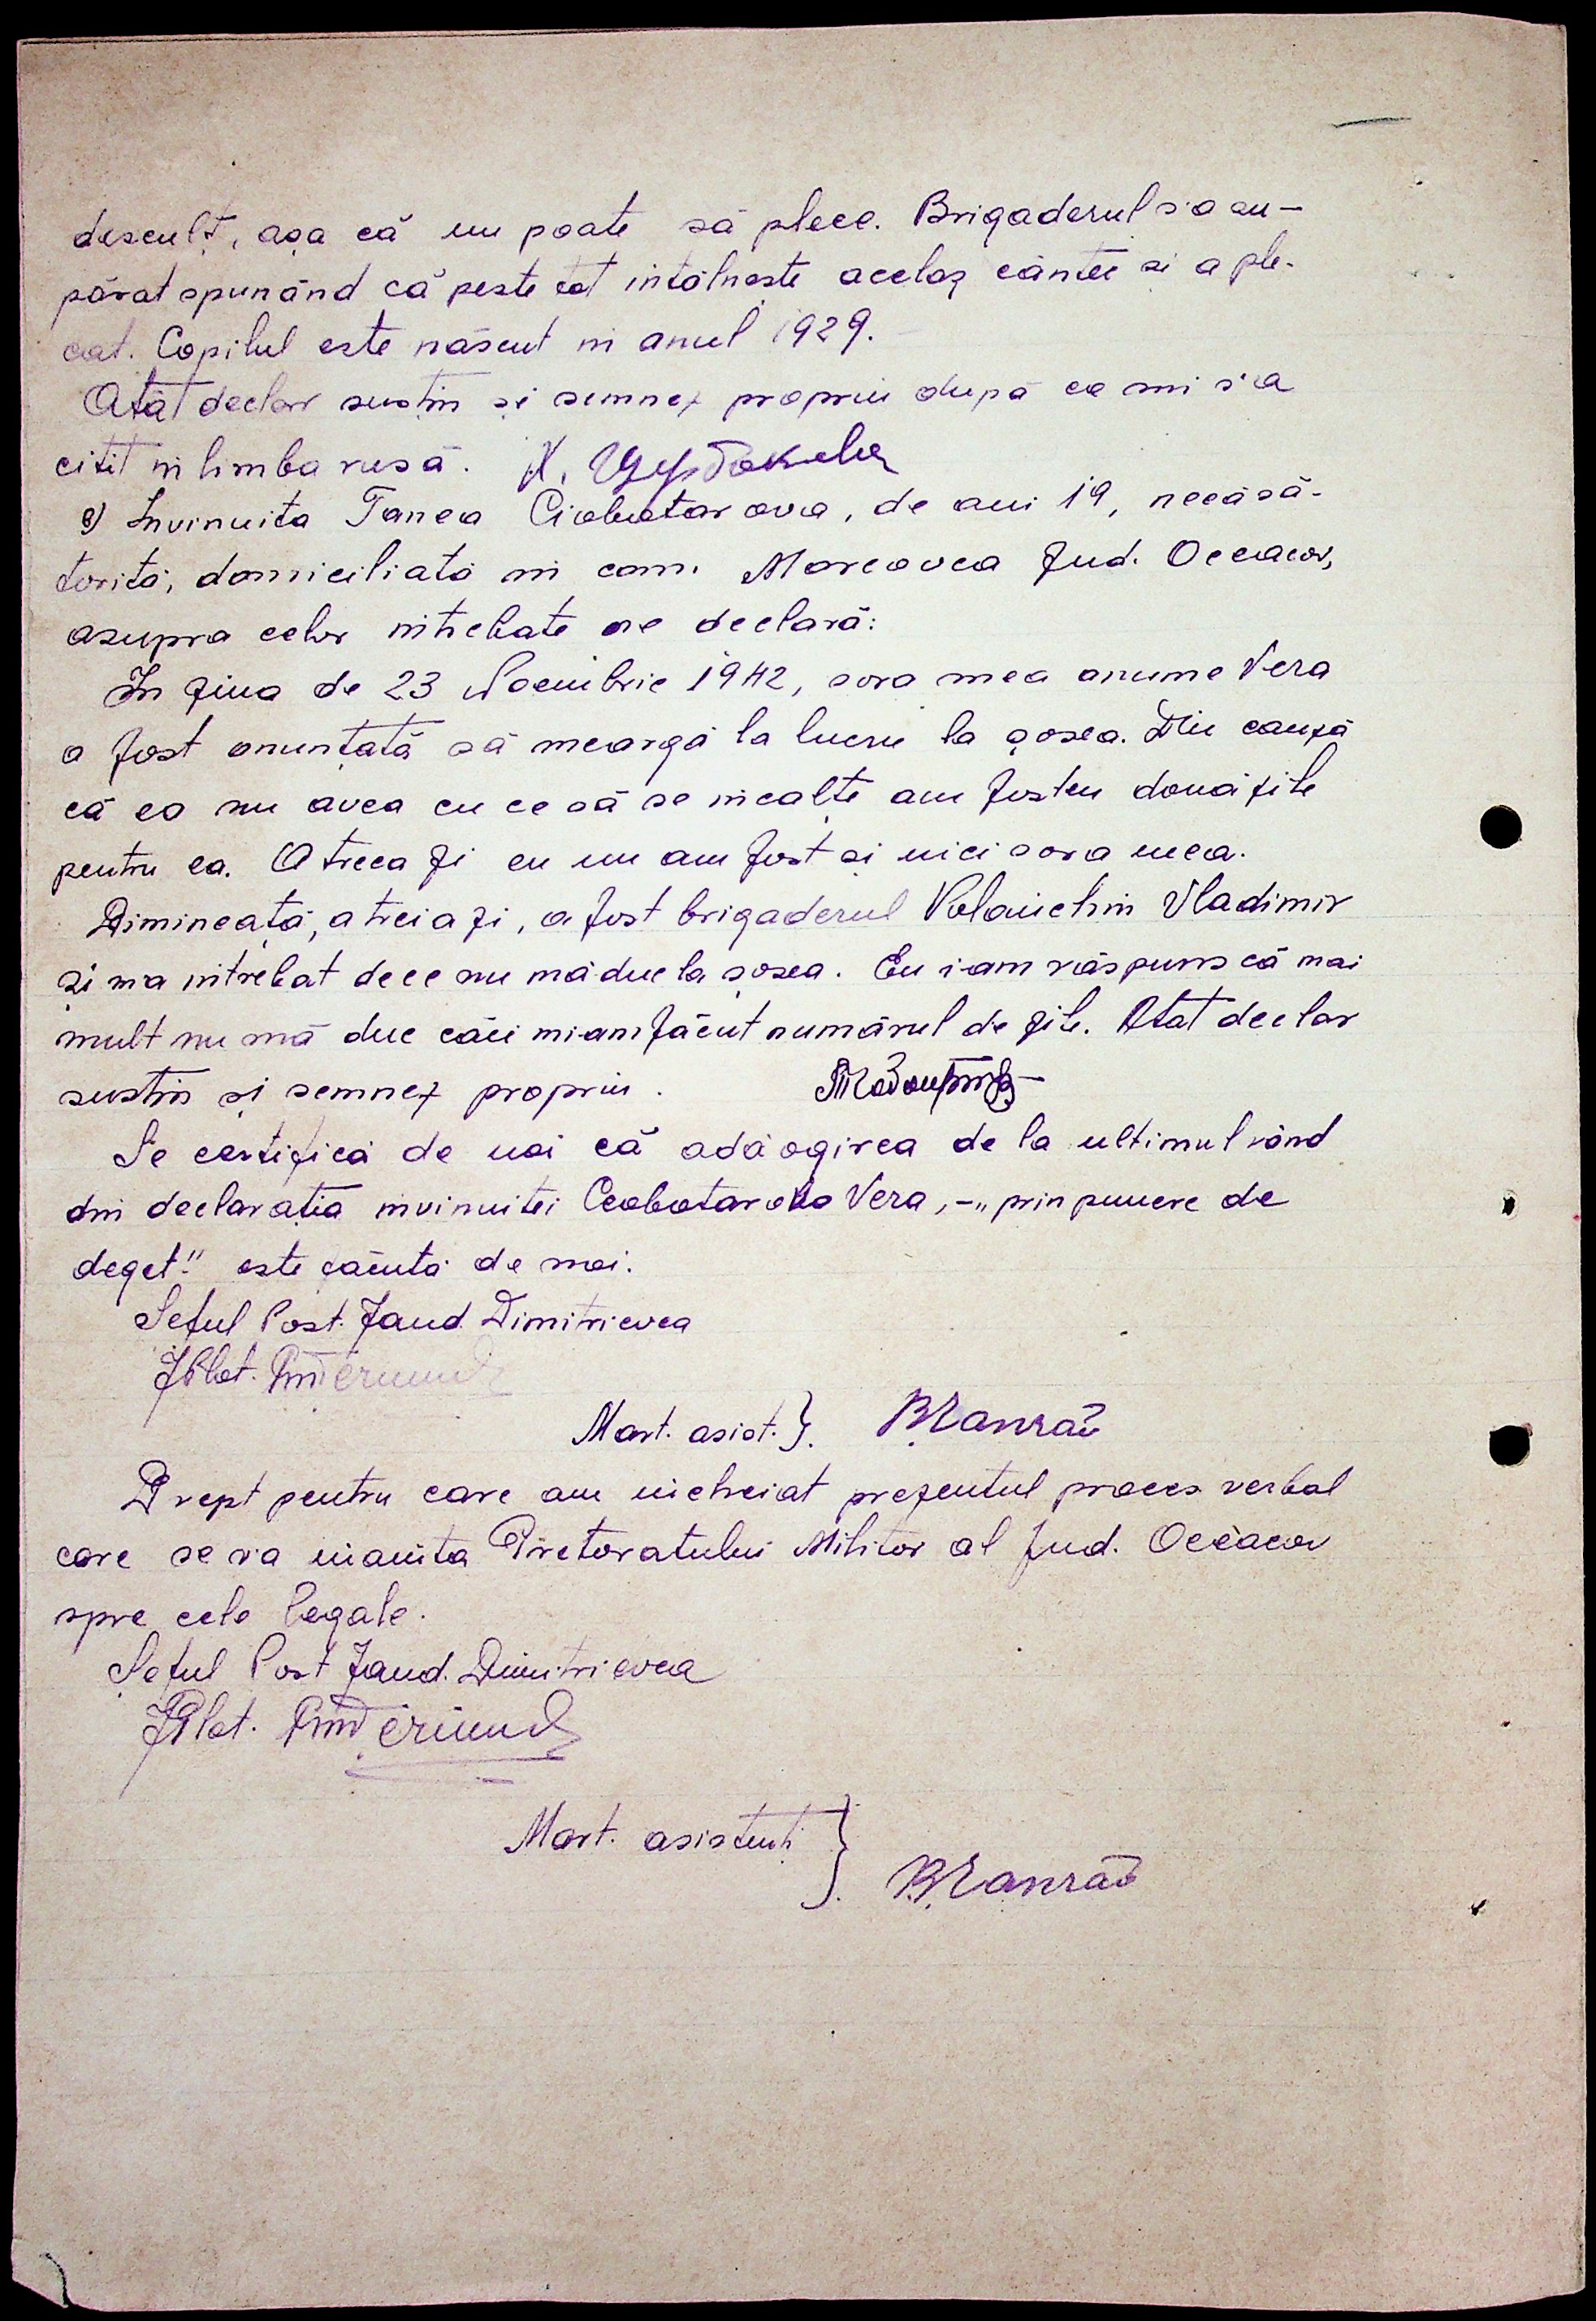 desculț, așa că nu poate să plece. Brigaderul s'a su-
părat spunând că peste tot intâlneste acelaș cântec si a ple-
cat. Copilul este născut in anul 1929.
Atât declar sustin și semnez propriu după ce mi s'a
citit in limba rusă. Х.
e) Invinuita Tanea Ciobotarova, de ani 19, necăsă-
torită, domiciliată in com. Marcovca Jud. Oceacov,
asupra celor intrebate ne declară:
In ziua de 23 Noembrie 1942, sora mea anume Vera
a fost anunțată să meargă la lucru la șosea. Din cauză
că ea nu avea cu ce să se incalțe am fost eu două zile
pentru ea. A treea zi eu nu am fost si nici sora mea.
Dimineață, a treia zi, a fost brigaderul Vladimir
și ma intrebat dece nu mă duc la șosea. Eu i-am răspuns că mai
mult nu mă duc căci mi-am făcut numărul de zile. Atat declar
sustin și semnez propriu.
Se certifică de noi că adăogirea de la ultimul rând
din declarația invinuitei Ceobotarova Vera, -„prin punere de
deget" este făcută de noi.
Seful Post. Jand. Dimitrievca
Plot.
Mart. asist. }.
Drept pentru care am incheiat prezentul proces verbal
care se va inainta Pretoratului Militar al Jud. Oceacov
spre cele legale.
Șeful Post Jand. Dimitrievca
Plot.
Mart. asistenti }.